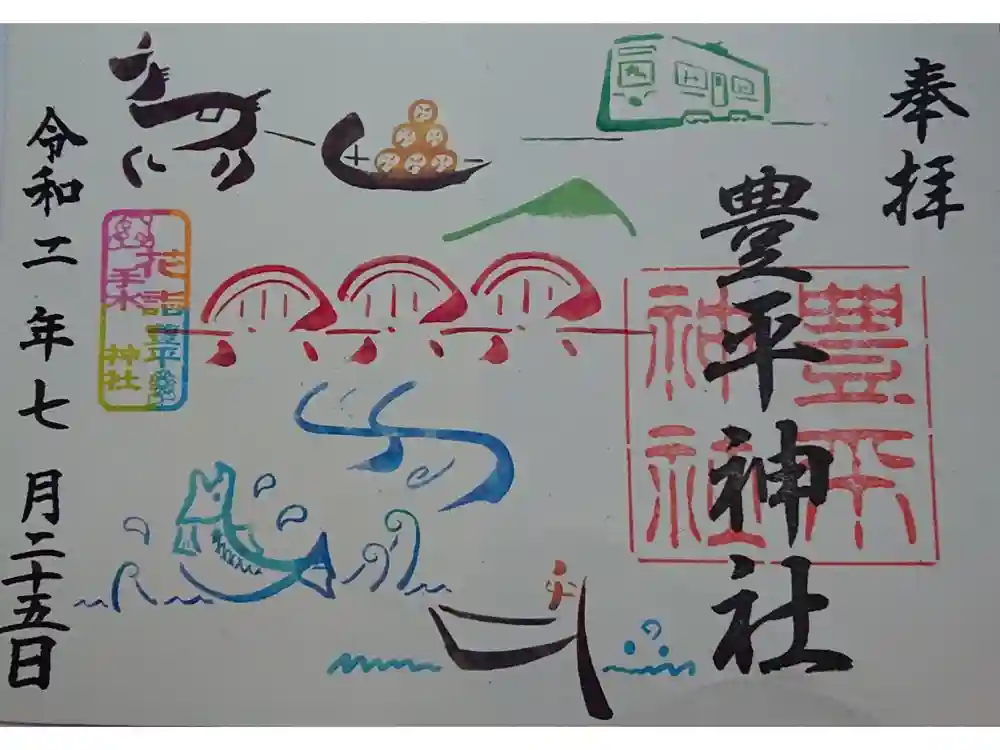 奉拝
豊平神社
豊平
神社
花詣
豊平
手水
神社
令和二年七月二十五日